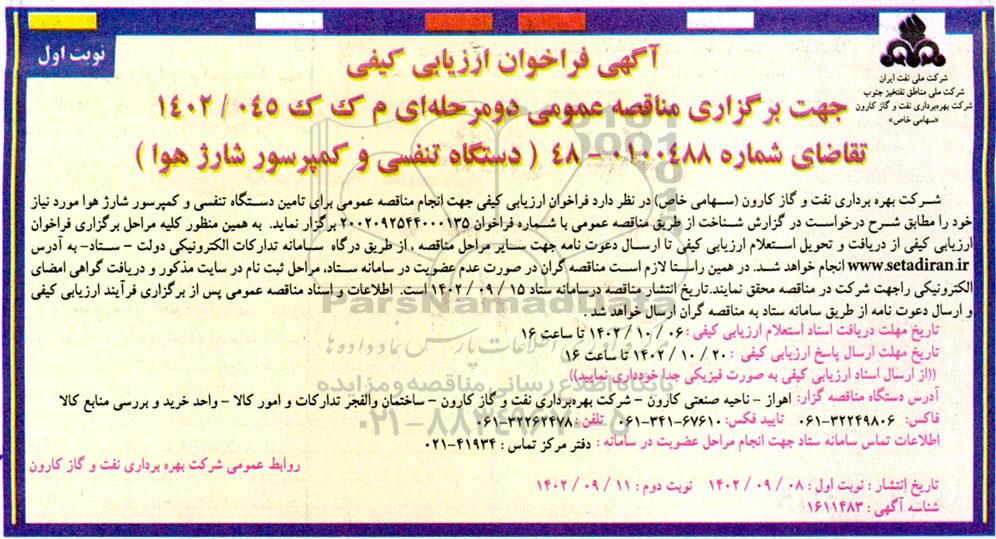 نوبت اول
شرکت ملی نفت ایران
شرکت ملی مناطق نفتخیز جنوب
شرکت بهره‌برداری نفت و گاز کارون
«سهامی خاص»
آگهی فراخوان ارزیابی کیفی
جهت برگزاری مناقصه عمومی دومرحله‌ای م ک ک ۰۴۵ / ۱۴۰۲
تقاضای شماره ۰۱۰۰۴۸۸ – ۴۸ ( دستگاه تنفسی و کمپرسور شارژ هوا )
شرکت بهره برداری نفت و گاز کارون (سهامی خاص) در نظر دارد فراخوان ارزیابی کیفی جهت انجام مناقصه عمومی برای تامین دستگاه تنفسی و کمپرسور شارژ هوا مورد نیاز
خود را مطابق شرح درخواست در گزارش شناخت از طریق مناقصه عمومی با شماره فراخوان ۲۰۰۲۰۹۲۵۴۴۰۰۰۱۳۵ برگزار نماید. به همین منظور کلیه مراحل برگزاری فراخوان
ارزیابی کیفی از دریافت و تحویل استعلام ارزیابی کیفی تا ارسال دعوت نامه جهت سایر مراحل مناقصه ، از طریق درگاه سامانه تدارکات الکترونیکی دولت – ستاد– به آدرس
www.setadiran.ir انجام خواهد شد. در همین راستا لازم است مناقصه گران در صورت عدم عضویت در سامانه ستاد، مراحل ثبت نام در سایت مذکور و دریافت گواهی امضای
الکترونیکی راجهت شرکت در مناقصه محقق نمایند.تاریخ انتشار مناقصه درسامانه ستاد ۱۵ / ۰۹ / ۱۴۰۲ است. اطلاعات و اسناد مناقصه عمومی پس از برگزاری فرآیند ارزیابی کیفی
و ارسال دعوت نامه از طریق سامانه ستاد به مناقصه گران ارسال خواهد شد .
تاریخ مهلت دریافت اسناد استعلام ارزیابی کیفی : ۰۶ / ۱۰ / ۱۴۰۲ تا ساعت ۱۶
تاریخ مهلت ارسال پاسخ ارزیابی کیفی : ۲۰ / ۱۰ / ۱۴۰۲ تا ساعت ۱۶
((از ارسال اسناد ارزیابی کیفی به صورت فیزیکی جدا خودداری نمایید))
آدرس دستگاه مناقصه گزار: اهواز – ناحیه صنعتی کارون – شرکت بهره‌برداری نفت و گاز کارون – ساختمان والفجر تدارکات و امور کالا – واحد خرید و بررسی منابع کالا
فاکس: ۳۲۲۴۹۸۰۶-۰۶۱ تایید فکس: ۶۷۶۱۰-۳۴۱-۰۶۱ تلفن: ۳۲۲۶۲۴۷۸-۰۶۱
اطلاعات تماس سامانه ستاد جهت انجام مراحل عضویت در سامانه : دفتر مرکز تماس : ۴۱۹۳۴-۰۲۱
روابط عمومی شرکت بهره برداری نفت و گاز کارون
تاریخ انتشار : نوبت اول : ۰۸ / ۰۹ / ۱۴۰۲ نوبت دوم : ۱۱ / ۰۹ / ۱۴۰۲
شناسه آگهی : ۱۶۱۱۴۸۳
ParsNamadData
مرکز فرآوری اطلاعات پارس نماد داده ها
پایگاه اطلاع رسانی مناقصه و مزایده
۰۲۱-۸۸۳۴۹۶۷۰-۵